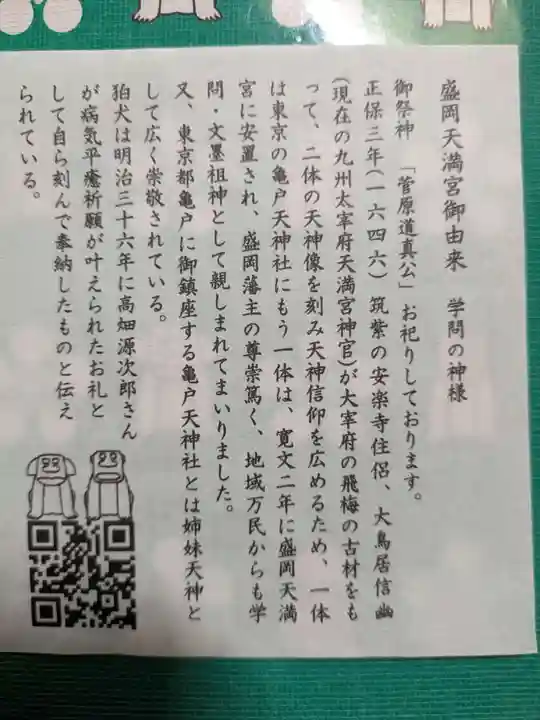 盛岡天満宮御由来　学問の神様
御祭神　「菅原道真公」お祀りしております。
正保三年(一六四六)　筑紫の安楽寺住侶、大鳥居信幽
(現在の九州太宰府天満宮神官)が大宰府の飛梅の古材をも
って、二体の天神像を刻み天神信仰を広めるため、一体
は東京の亀戸天神社にもう一体は、寛文二年に盛岡天満
宮に安置され、盛岡藩主の尊崇篤く、地域万民からも学
問・文墨祖神として親しまれてまいりました。
又、東京都亀戸に御鎮座する亀戸天神社とは姉妹天神と
して広く崇敬されている。
狛犬は明治三十六年に高畑源次郎さん
が病気平癒祈願が叶えられたお礼と
して自ら刻んで奉納したものと伝え
られている。